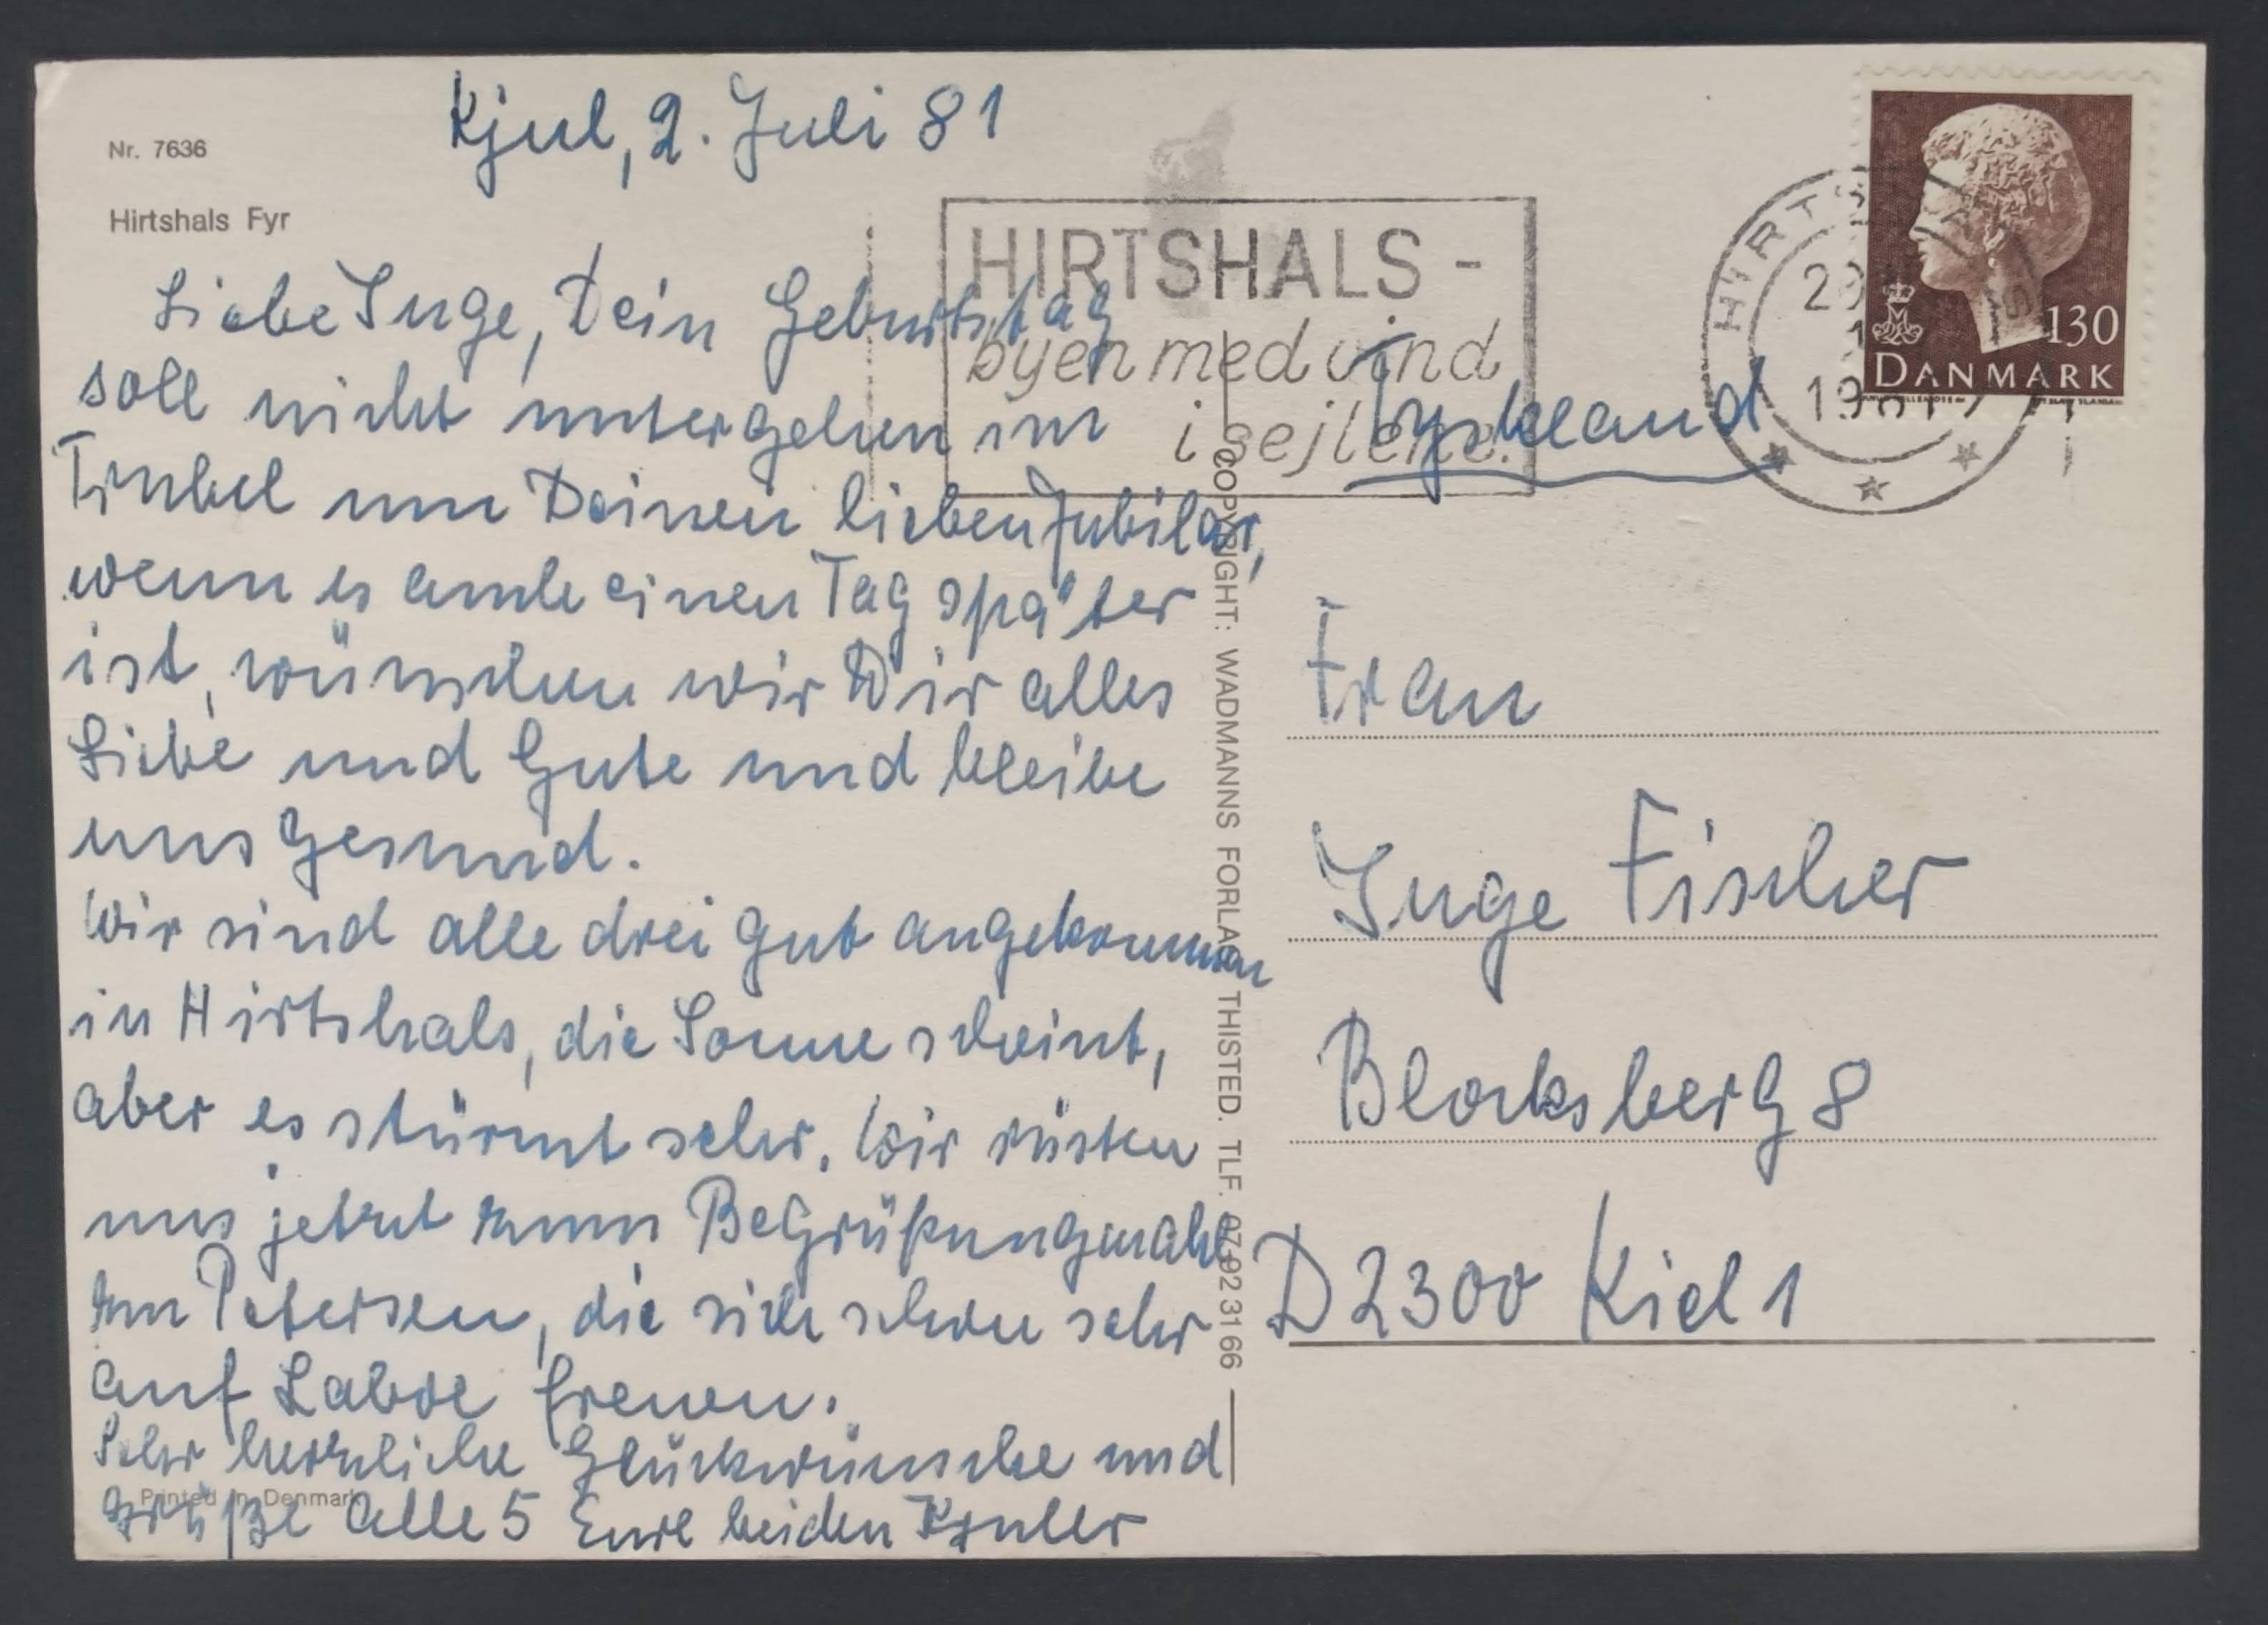 Kjul, 2. Juli 81
Nr. 7636
Hirtshals Fyr
Liebe Inge, Dein Geburtstag
soll nicht untergehen im
Trubel um Deinen lieben Jubilar,
wenn es auch einen Tag später
ist, wünschen wir Dir alles
Liebe und Gute und bleibe
uns gesund.
Wir sind alle drei gut angekommen
in Hirtshals, die Sonne scheint,
aber es stürmt sehr. Wir rüsten
uns jetzt zum Begrüßungmahl
zu Petersen, die sich schon sehr
auf Laboe freuen.
Sehr herzliche Glückwünsche und
Grüße alle 5 Eure beiden Kjuler
Printed in Denmark
HIRTSHALS -
byen med vind
i sejlene.
HIRTSHALS
1981
130
DANMARK
Tyskland
COPYRIGHT: WADMANNS FORLAG THISTED. TLF. 07-92 31 66
Frau
Inge Fischer
Blocksberg 8
D 2300 Kiel 1